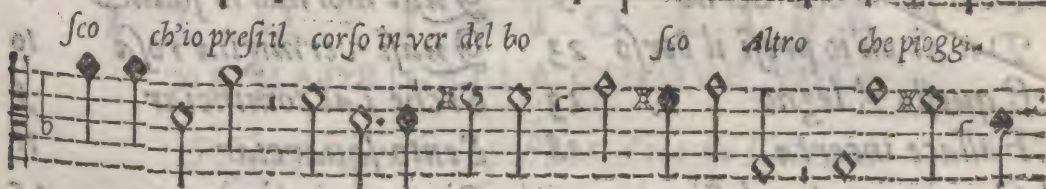 ſco ch'io preſi il corſo in ver del bo ſco Altro che pioggia